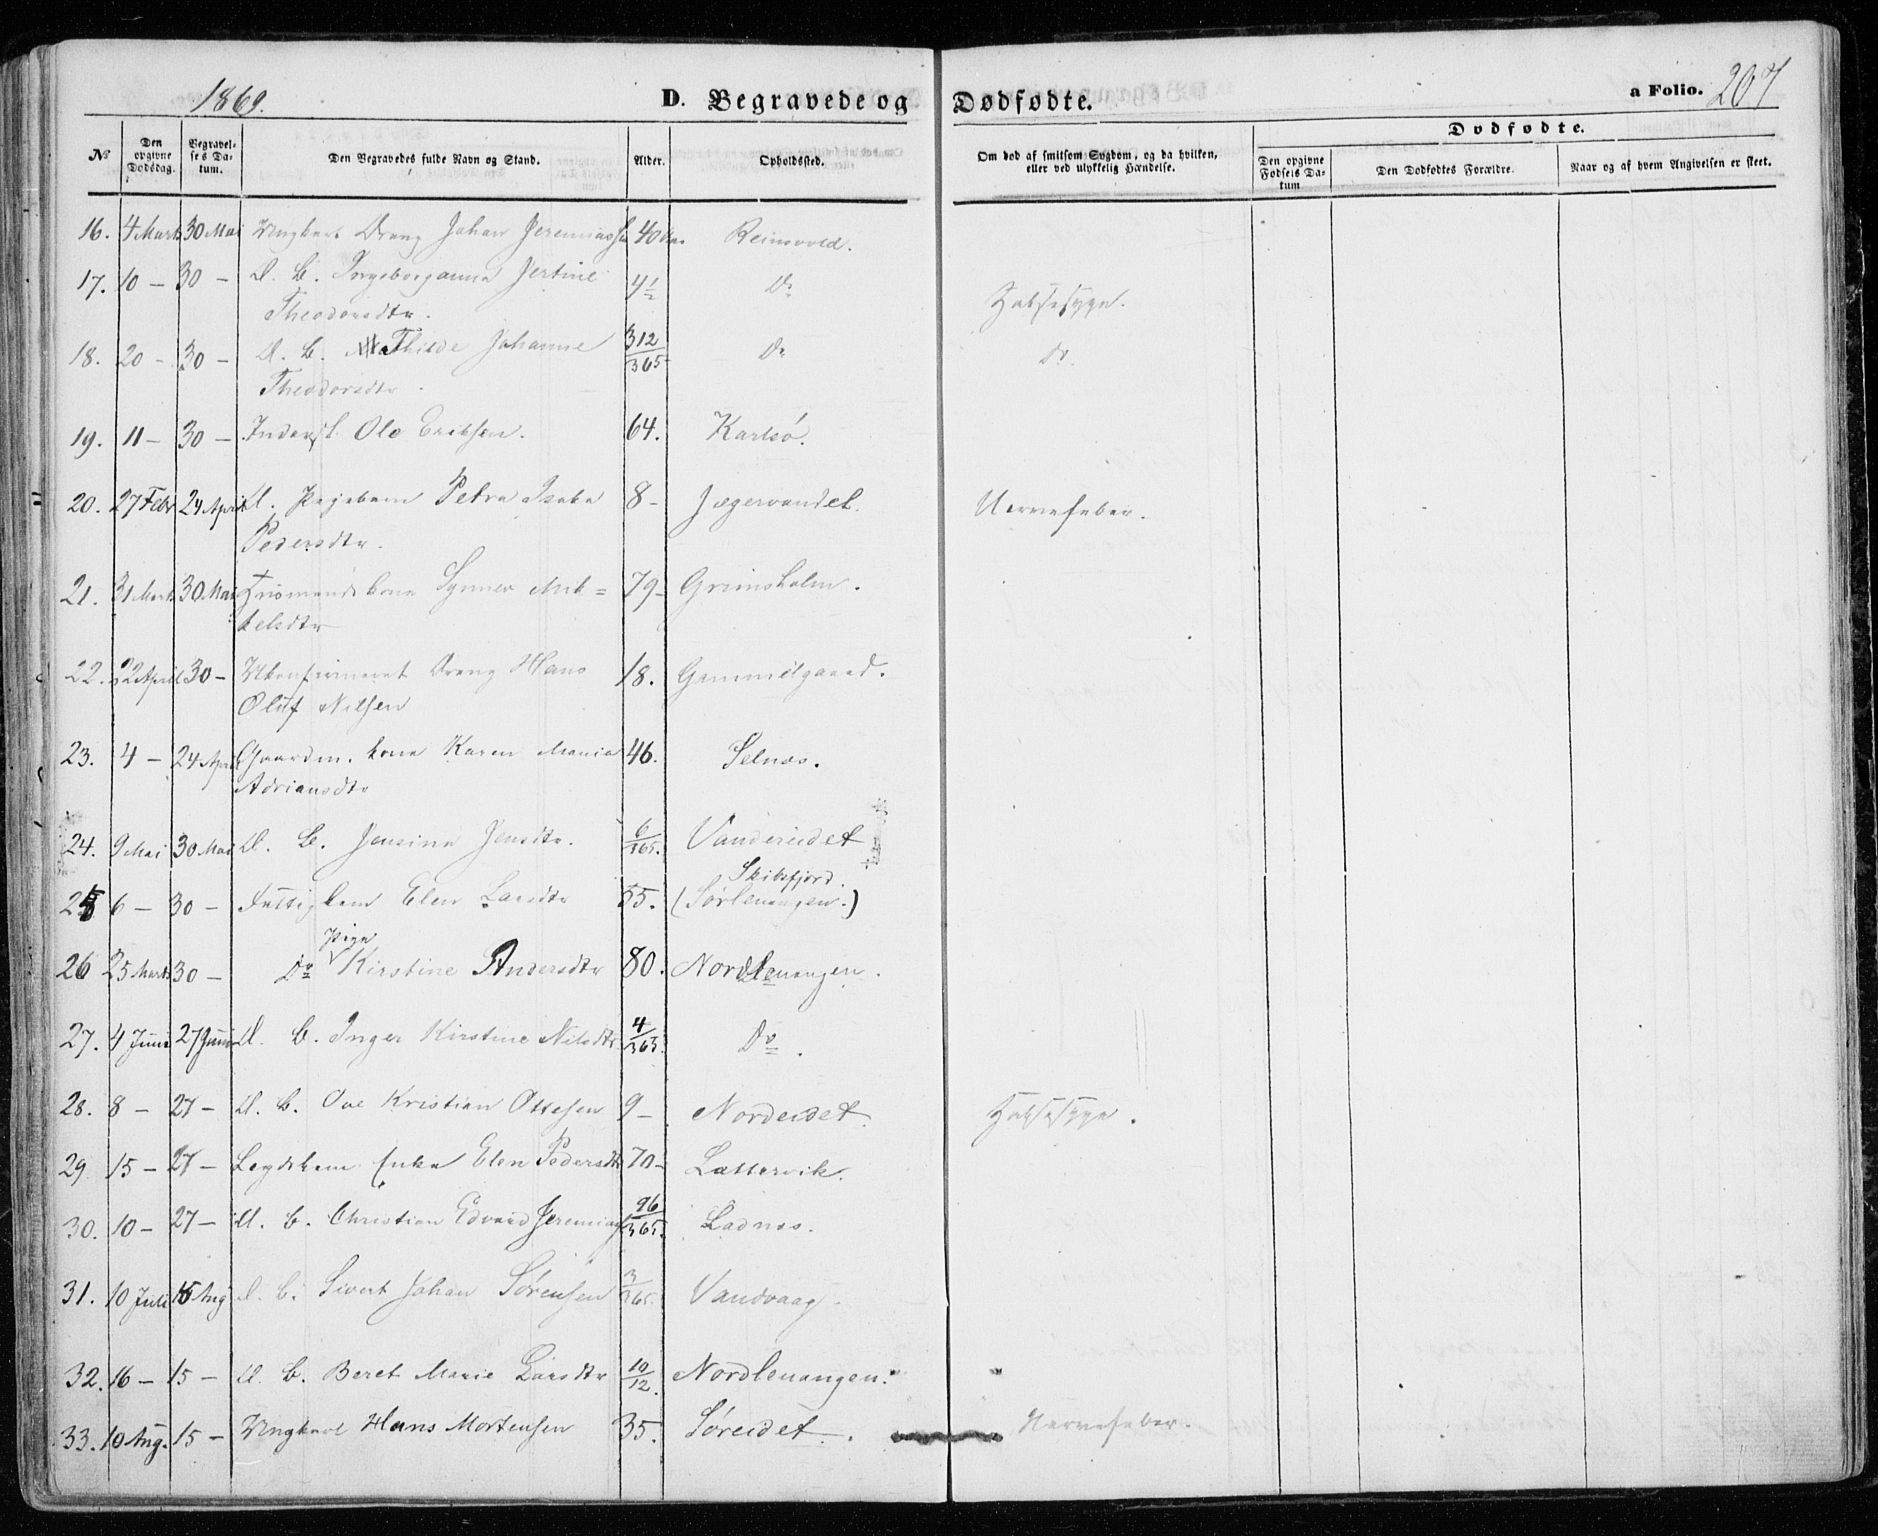 1869.
D. Begravede og Dødfødte.
a Folio. 207
№
Den opgivne Dødsdag.
Begravelses Datum.
Den Begravedes fulde Navn og Stand.
Alder.
Opholdssted.
Om død af smitsom Sygdom, og da hvilken, eller ved ulykkelig Hændelse.
Dødfødte.
Den opgivne Fødsels Datum
Den Dødfødtes Forældre.
Naar og af hvem Angivelsen er skeet.
16. 4 Marts 30 Mai Ungkarl Dreng Johan Jeremiassen 40 Reinsvold.
17. 10 — 30 — U. B. Ingeborganna Jertine 4½ Do Halssyge.
Theodorsdtr.
18. 20 — 30 — U. B. Mathilde Johanne 312/365 Do Do.
Theodorsdtr.
19. 11 — 30 — Inderst Ole Eriksen. 64. Karlsø.
20. 27 Febr 24 April U. Pigebarn Petra Isaka 8 — Jægervandet. Nervefeber.
Pedersdtr.
21. 31 Marts 30 Mai Huusmandskone Synnev Mik= 79 — Grimsholm.
kelsdtr
22. 22 April 30 — Ukonfirmeret Dreng Hans 18. Gammelgaard.
Oluf Nilsen
23. 4 — 24 April Gaardm. kone Karen Maria 46. Selnæs.
Adriansdtr
24. 9 Mai 30 Mai U. B. Jensine Jensdtr. 6/365. Vandeidet
Skibsfjord.
25 6 — 30 — Fattiglem Elen Larsdtr 55. (Sørlenangen.)
Pige
26 25 Marts 30 — Do Kirstine Andersdtr 80. Nordlenangen.
27. 4 Juni 27 Juni U. B. Inger Kirstine Nilsdtr 4/365. Do.
28. 8 — 27 — U. B. Ove Kristian Ottesen 9 — Nordeidet. Halssyge.
29 15 — 27 — Lægdslem Enke Elen Pedersdtr 70 — Lattervik.
30. 10 — 27 — U. B. Christian Edvard Jeremiass 96/365. Ladnæs.
31. 10 Juli 15 Aug U. B. Sivert Johan Sørensen 3/365. Vandvaag.
32. 16 — 15 — U. B. Beret Marie Larsdtr 10/12. Nordlenangen.
33. 10 Aug. 15 — Ungkarl Hans Mortensen 35. Søreidet. Nervefeber.